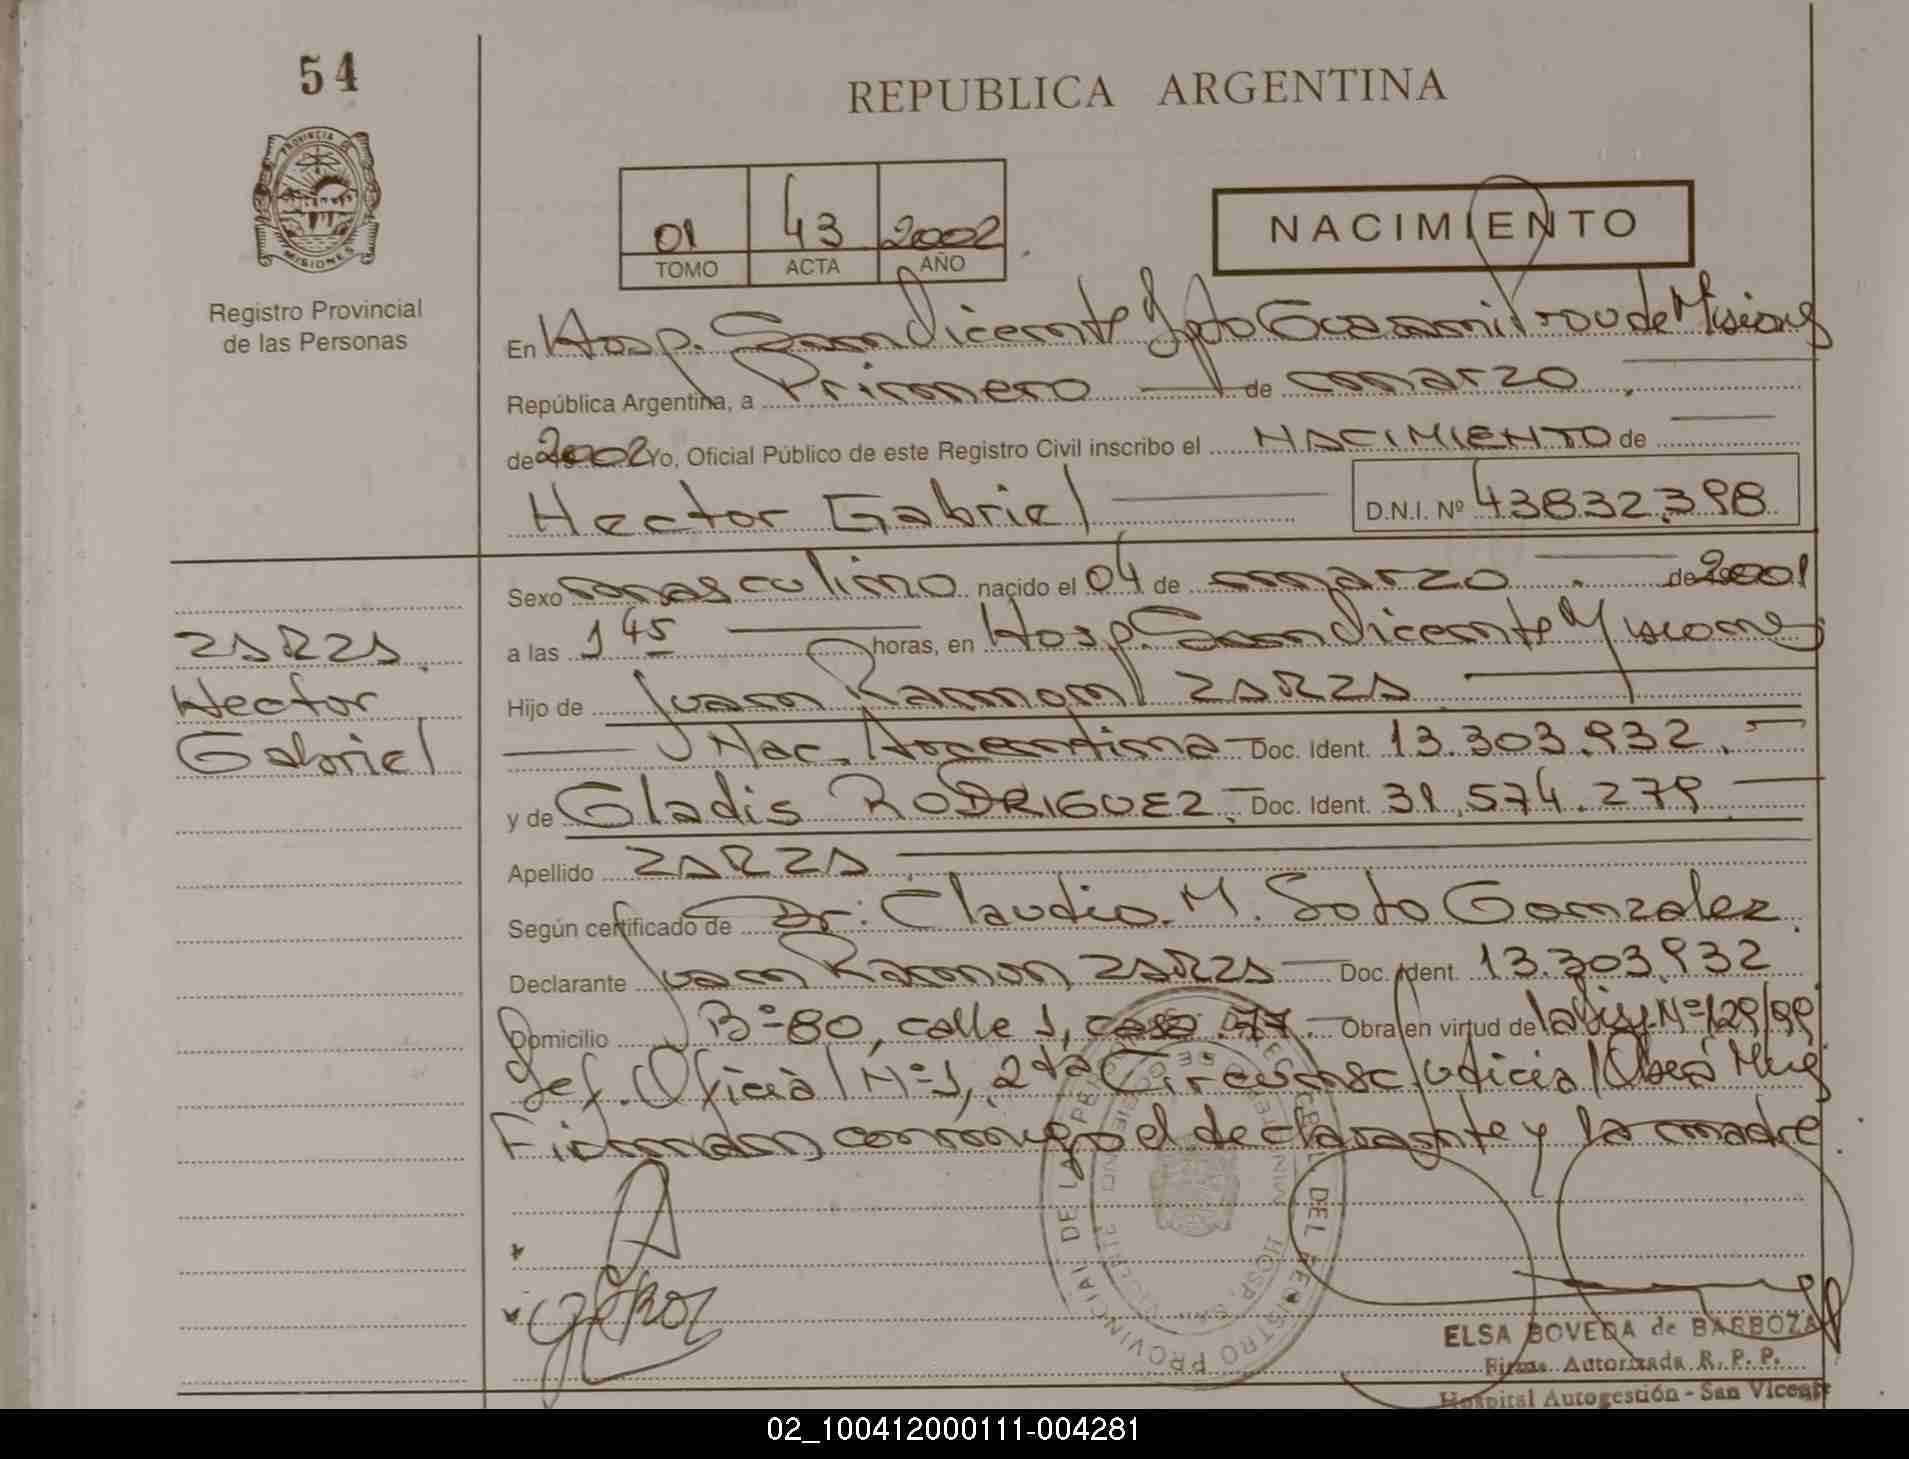 54
REPUBLICA ARGENTINA
PROVINCIA DE
MISIONES
Registro Provincial
de las Personas
01 43 2002
TOMO ACTA AÑO
NACIMIENTO
En Hosp. San Vicente Dpto Guarani Prov de Misiones
República Argentina, a Primero de marzo
de 2002 Yo, Oficial Público de este Registro Civil inscribo el NACIMIENTO de
Hector Gabriel D.N.I. Nº 43832.398
ZARZA
Hector
Gabriel
Sexo masculino nacido el 04 de marzo de 2001
a las 1 45 horas, en Hosp. San Vicente Misiones
Hijo de Juan Ramon ZARZA
Nac. Argentina Doc. Ident. 13.303.932.
y de Gladis RODRIGUEZ Doc. Ident. 31.574.279
Apellido ZARZA
Según certificado de Dr. Claudio. M. Soto Gonzalez
Declarante Juan Ramon ZARZA Doc. Ident. 13.303.932
Domicilio Bº 80, calle 1, casa 77. Obra en virtud de la Disp. Nº 129/99
Def. Oficial Nº 1, 2da Circunsc Judicial Oberá Mnes
Firman conmigo el declarante y la madre
REGISTRO PROVINCIAL DE LAS
HOSP. SAN VICENTE
ELSA BOVEDA de BARBOZA
Firma Autorizada R. P. P.
Hospital Autogestión - San Vicente
02_100412000111-004281